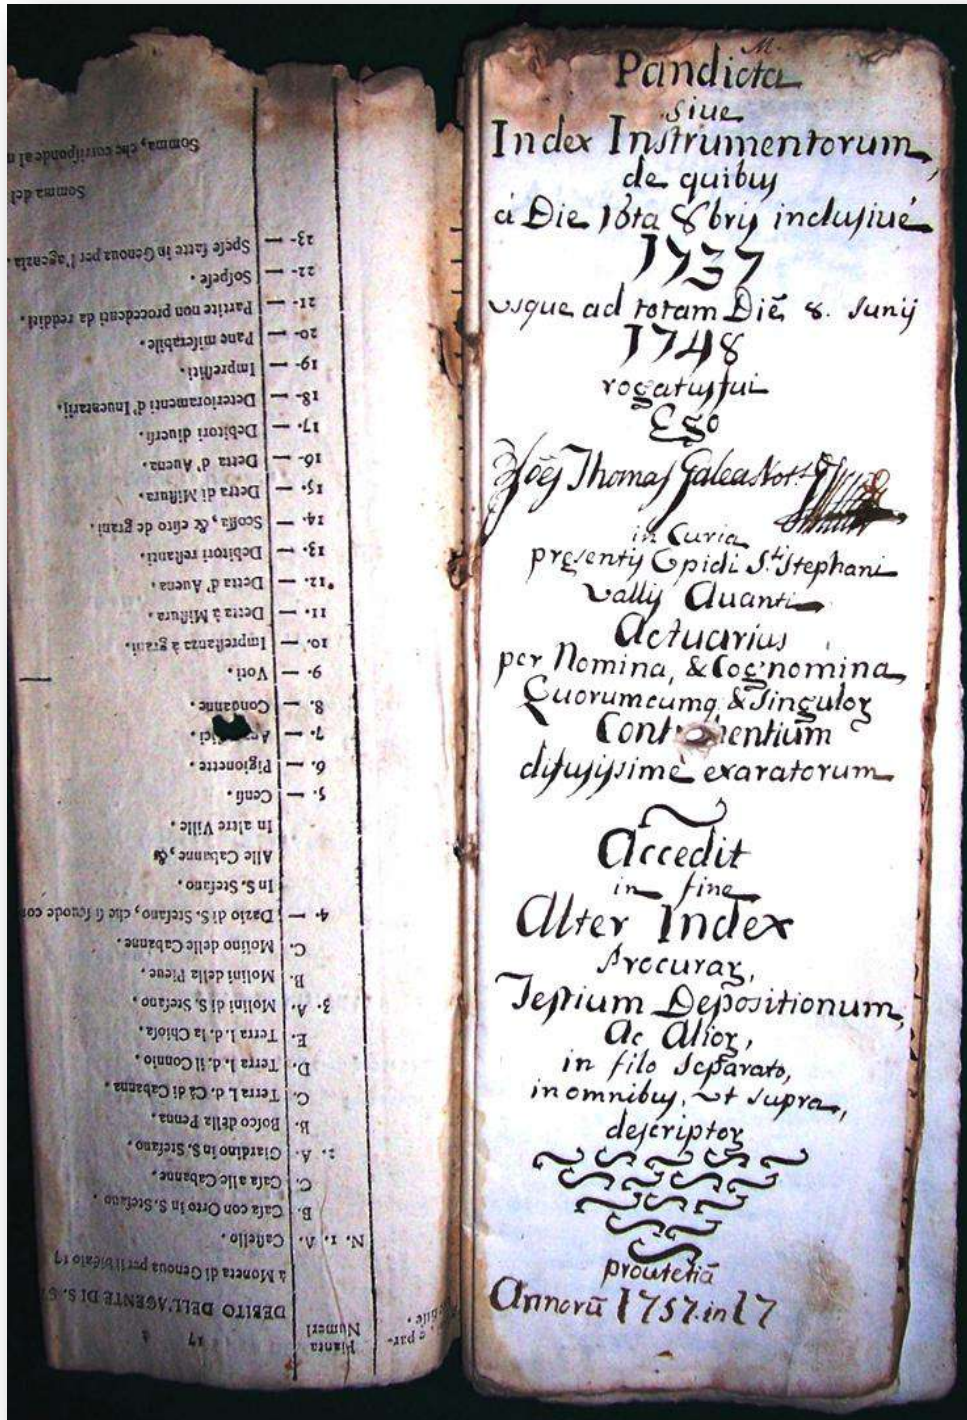 Pandicta
siue
Index Instrumentorum,
de quibus
à Die 8bris inclusiuè
1737
vsque ad totam Diē 8. Junij
1748
rogatus fui
Ego
Joēs Thomas Galea Not.s
in Curia
presentis Opidi S.ti Stephani
Vallis Auanti
Actuarius
per Nomina, & Cognomina
Quorumcumq & Singuloꝝ
ditusissimè exaratorum
Accedit
in fine
Alter Index
Procuraꝝ,
Testium Depositionum,
Ac Alioꝝ,
in filo separato,
in omnibus, vt supra,
descriptoꝝ
proutetiā
Annorū 1757. in 17
Pianta
Numeri
17
DEBITO DELL'AGENTE DI S.
à Moneta di Genoua per il
N. 1. A. Castello.
B. Casa con Orto in S. Stefano.
C. Casa alle Cabanne.
2. A. Giardino in S. Stefano.
B. Bosco della Penna.
C. Terra l. d. Cà di Cabanna.
D. Terra l. d. il Connio.
E. Terra l. d. la Chiosa.
3. A. Molini di S. Stefano.
B. Molini della Pieue.
C. Molino delle Cabanne.
4. — Dazio di S. Stefano, che si scuode
In S. Stefano.
Alle Cabanne, &
In altre Ville.
5. — Censi.
6. — Pigionette.
7. —
8. — Condanne.
9. — Voti.
10. — Imprestanza à grani.
11. — Detta à Mistura.
12. — Detta d'Auena.
13. — Debitori restanti.
14. — Scossa, & esito de grani.
15. — Detta di Mistura.
16. — Detta d'Auena.
17. — Debitori diuersi.
18. — Deterioramenti d'Inuentarij.
19. — Impressiti.
20. — Pane miserabile.
21. — Partite non procedenti da redditi.
22. — Sospese.
23. — Spese fatte in Genoua per l'agenzia.
Somma del
Somma, che corrisponde al